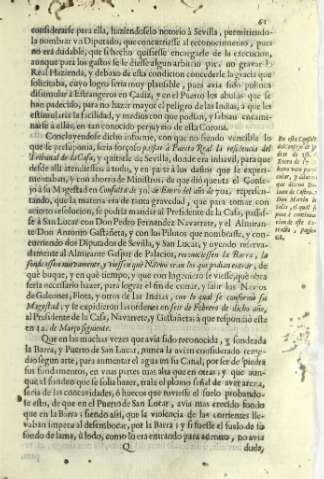 61
considerarse para ella, haziendoselo notorio à Sevilla, permitiendo-
la nombrar vn Diputado, que concurriesse al reconocimiento, pues
no era dudable, que si hecho quisiesse encargarse de la execucion,
aunque para los gastos se le diesse algun arbitrio por no gravar la
Real Hazienda, y debaxo de esta condicion concederle la gracia que
solicitaba, cuyo logro seria muy plausible, pues avia sido politica
dissimular à Estrangeros en Cadiz, y en el Puerto los abusos que se
han padecido, para no hazer mayor el peligro de las Indias, à que les
estimularia la facilidad, y medios con que podian, y sabian encami-
narse à ellas, en tan conocido perjuyzio de esta Corona.
Concluyendose dicho informe, con que no siendo vencible lo
que se presuponia, seria forçoso passar à Puerto Real la residencia del
Tribunal de la Casa, y quitarse de Sevilla, donde era inhavil, para que
desde alli atendiesse à todo, y en parte à los daños que se experi-
mentaban, y con ahorro de Ministros; de que diò quenta el Conse-
jo à su Magestad en Consulta de 30. de Enero del año de 702. represen-
tando, que la materia era de tanta gravedad, que para tomar con
acierto resolucion, se podria mandar al Presidente de la Casa, passas-
se à San Lucar con Don Pedro Fernandez Navarrete, y el Almiran-
te Don Antonio Gastañeta, y con los Pilotos que nombrasse, y con-
curriendo dos Diputados de Sevilla, y San Lucar, y oyendo reserva-
damente al Almirante Gaspar de Palacios, reconociessen la Barra, la
fondeassen nuevamente, y viessen què Navios eran los que podian entrar, de
què buque, y en què tiempo, y que con ingeniero se viesse, què obra
seria necessario hazer, para lograr el fin de entrar, y salir los Navios
de Galeones, Flota, y otros de las Indias, con lo qual se conformò su
Magestad; y se expidieron las ordenes en siete de Febrero de dicho año,
al Presidente de la Casa, Navarrete, y Gastañeta: à que respondiò este
en 12. de Março siguiente.
Que en las muchas vezes que avia sido reconocida, y sondeada
la Barra, y Puerto de San Lucar, nunca la avian considerado reme-
dio segun arte, para aumentar el agua en su Canal, por ser de piedra
sus fundamentos, en vnas partes mas alta que en otras; y que aun-
que el sondeo que se solia hazer, traìa el plomo señal de aver arena,
seria de las concavidades, ò huecos que tuviesse el suelo probando-
se esto, de que en el Puerto de San Lucar, avia mas crecido fondo
que en la Barra; siendo assi, que la violencia de las corrientes lle-
vaban impetu al desembocar, por la Barra; y si fuesse el suelo de su
fondo de lama, ù lodo, como lo era entrando para adentro, no avia
Q
duda,
En esta Consulta